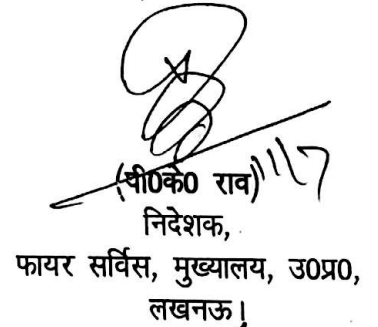 (पी0के0 राव)
निदेशक,
फायर सर्विस, मुख्यालय, उ0प्र0,
लखनऊ।